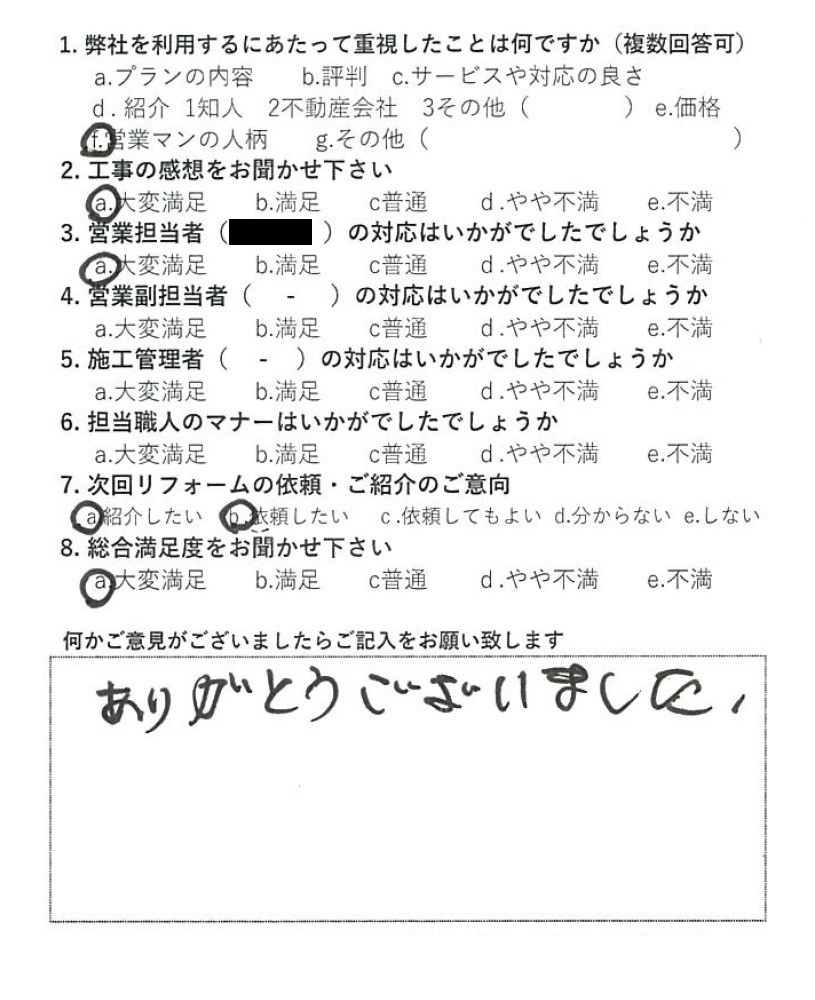 1. 弊社を利用するにあたって重視したことは何ですか（複数回答可）
a.プランの内容 b.評判 c.サービスや対応の良さ
d. 紹介 1知人 2不動産会社 3その他（ ） e.価格
f.営業マンの人柄 g.その他（ ）
2. 工事の感想をお聞かせ下さい
a.大変満足 b.満足 c普通 d.やや不満 e.不満
3. 営業担当者（ ）の対応はいかがでしたでしょうか
a.大変満足 b.満足 c普通 d.やや不満 e.不満
4. 営業副担当者（ - ）の対応はいかがでしたでしょうか
a.大変満足 b.満足 c普通 d.やや不満 e.不満
5. 施工管理者（ - ）の対応はいかがでしたでしょうか
a.大変満足 b.満足 c普通 d.やや不満 e.不満
6. 担当職人のマナーはいかがでしたでしょうか
a.大変満足 b.満足 c普通 d.やや不満 e.不満
7. 次回リフォームの依頼・ご紹介のご意向
a紹介したい b.依頼したい c.依頼してもよい d.分からない e.しない
8. 総合満足度をお聞かせ下さい
a.大変満足 b.満足 c普通 d.やや不満 e.不満
何かご意見がございましたらご記入をお願い致します
ありがとうございました、